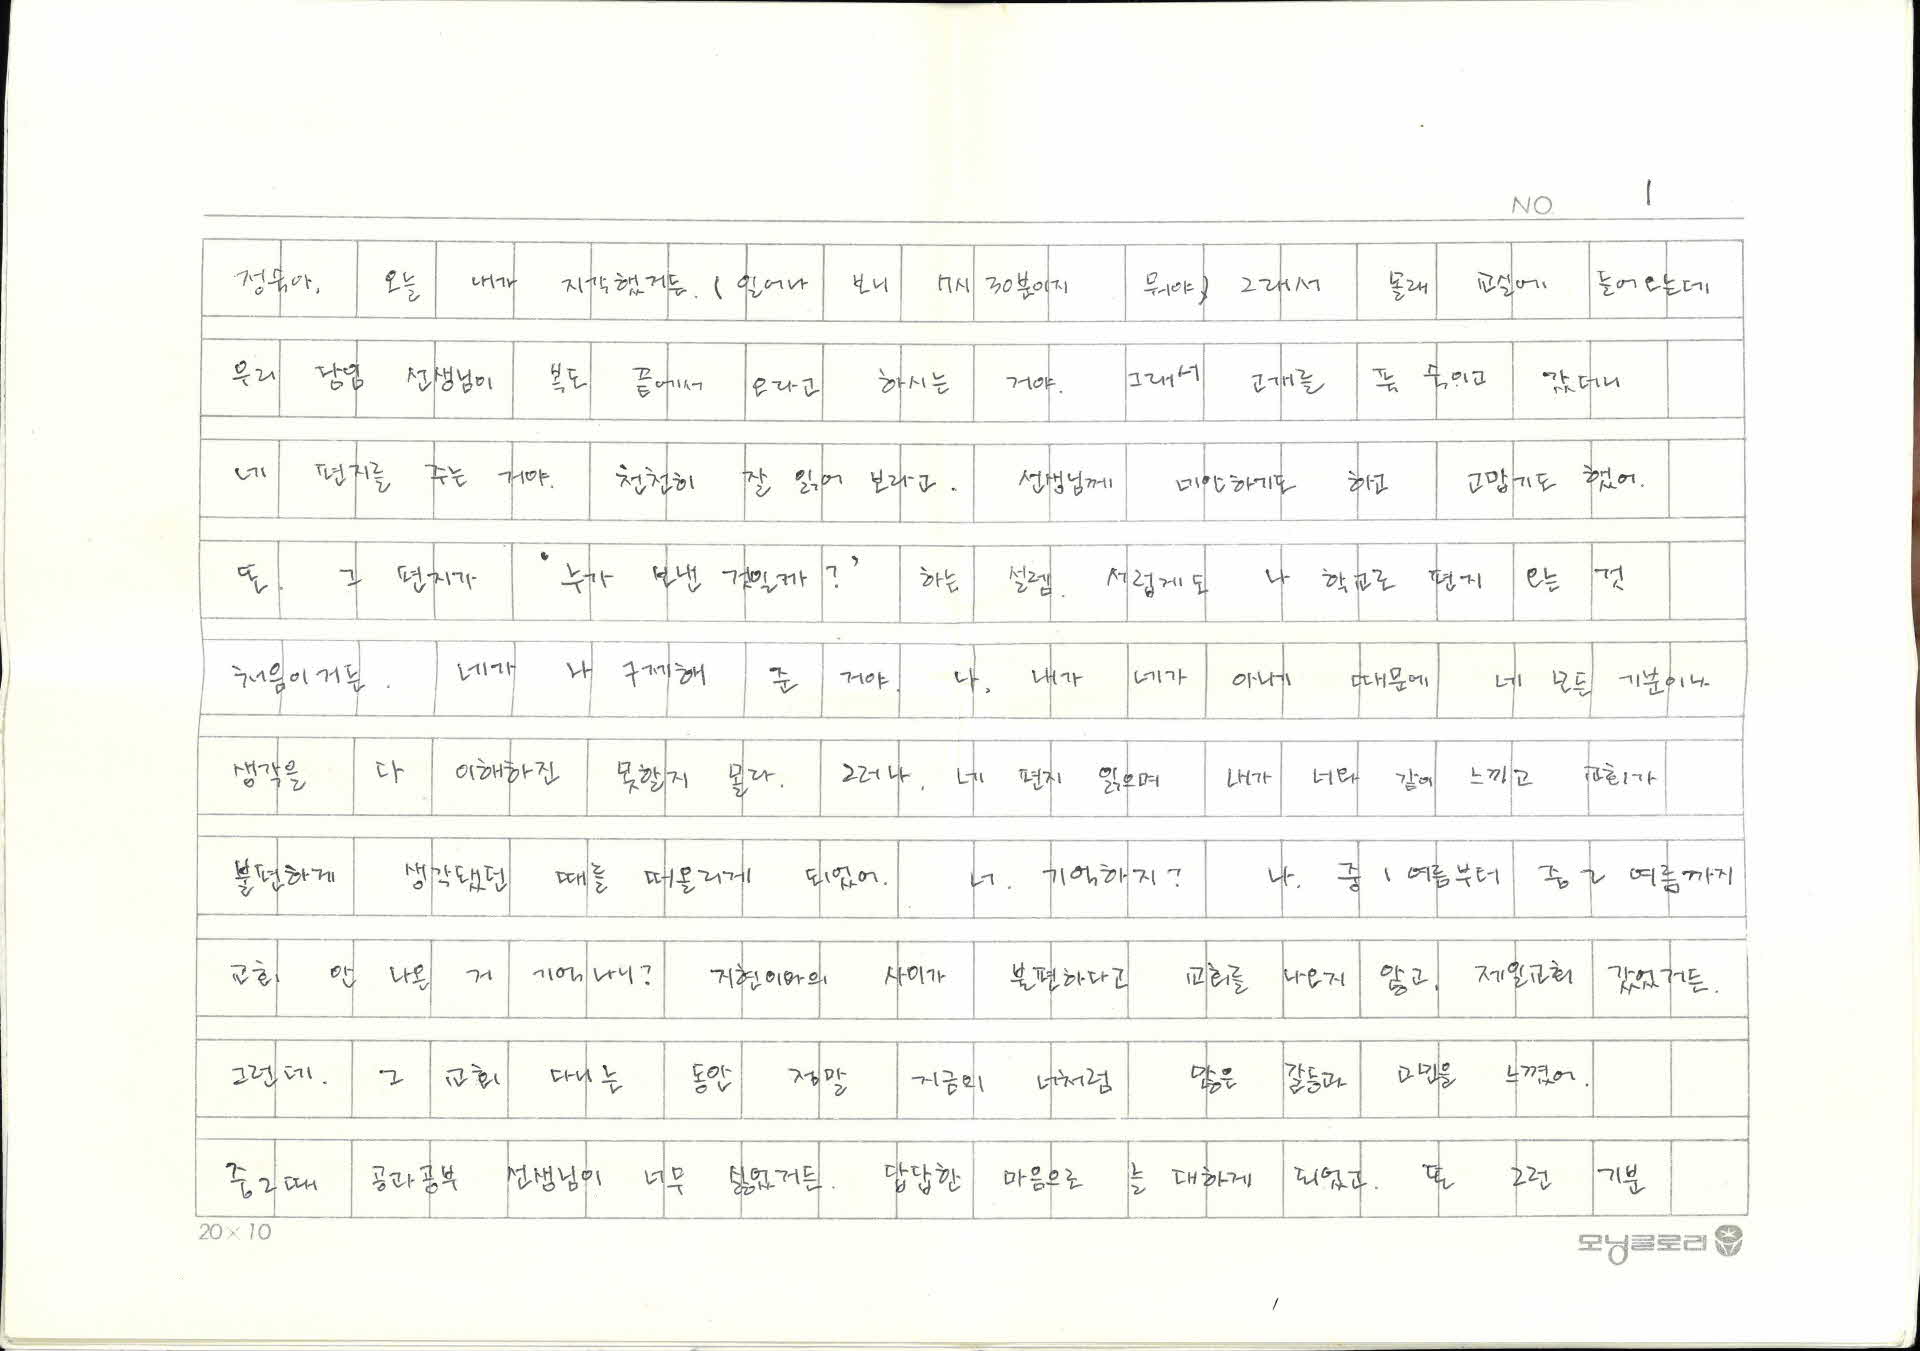 NO 1
정숙아, 오늘 내가 지각했거든. (일어나 보니 7시 30분이지 뭐야) 그래서 몰래 교실에 들어오는데
우리 담임 선생님이 복도 끝에서 오라고 하시는 거야. 그래서 고개를 푹 숙이고 갔더니
네 편지를 주는 거야. 천천히 잘 읽어 보라고. 선생님께 미안하기도 하고 고맙기도 했어.
또. 그 편지가 '누가 보낸 것일까?' 하는 설렘. 서럽게도 나 학교로 편지 오는 것
처음이거든. 네가 나 구제해 준 거야. 나, 내가 네가 아니기 때문에 네 모든 기분이나
생각을 다 이해하진 못할지 몰라. 그러나, 네 편지 읽으며 내가 너와 같이 느끼고 교회가
불편하게 생각됐던 때를 떠올리게 되었어. 너. 기억하지? 나. 중 1 여름부터 중 2 여름까지
교회 안 나온 거 기억나니? 지현이와의 사이가 불편하다고 교회를 나오지 않고, 제일교회 갔었거든.
그런데. 그 교회 다니는 동안 정말 지금의 너처럼 많은 갈등과 고민을 느꼈어.
중2때 공과공부 선생님이 너무 싫었거든. 답답한 마음으로 늘 대하게 되었고. 또 그런 기분
20×10 모닝글로리